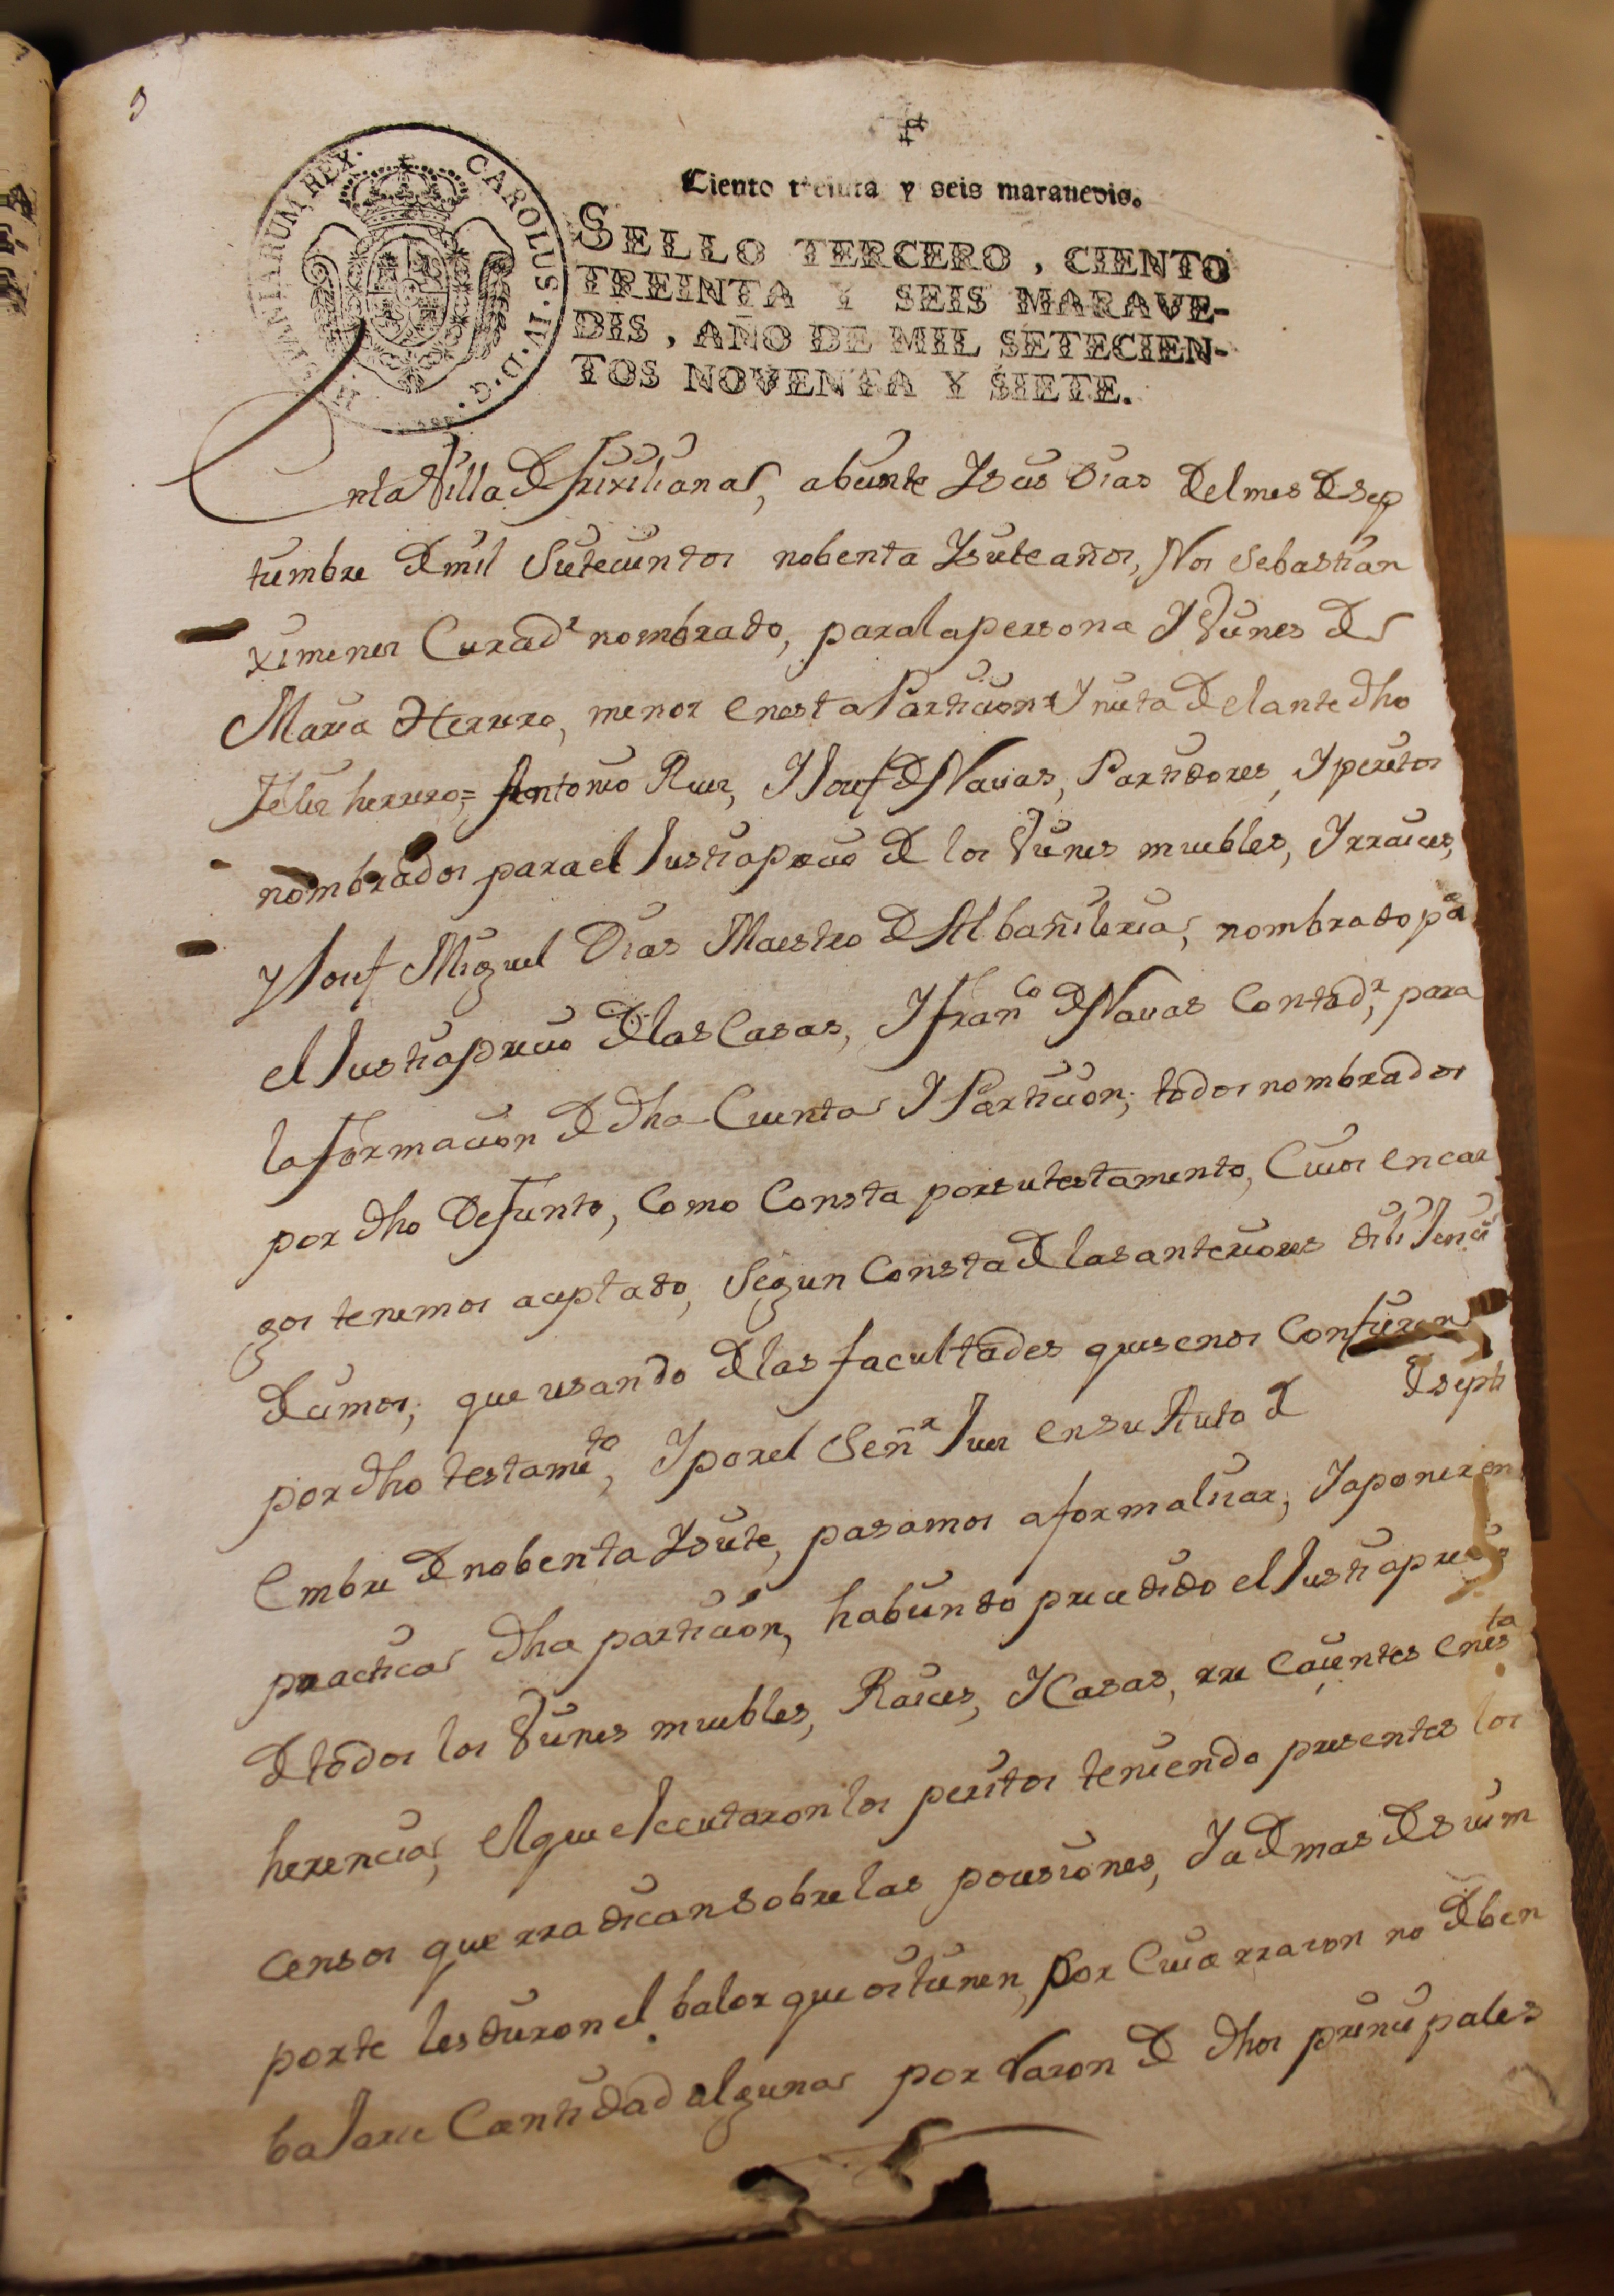 HISPANIARUM REX. CAROLUS. IV. D. G.
Ciento treinta y seis maravedis.
SELLO TERCERO, CIENTO
TREINTA Y SEIS MARAVE-
DIS, AÑO DE MIL SETECIEN-
TOS NOVENTA Y SIETE.
En la Villa de frixiliana, abeinte Iseis dias del mes de Sep
tiembre de mil Setecientos nobenta Isiete años, Nos Sebastian
ximenes Curadr nombrado, para la persona I Vienes de
Maria Herrero, menor en esta Particion I nieta del ante dho
Felis herrero = Antonio Ruis, I Josef de Navas, Partidores, I peritos
nombrados para el Justiaprecio de los Vienes muebles, I rraices,
y Josef Miguel Dias Maestro de Albañileria, nombrado pa
el Justiaprecio de las Casas, I franco de Navas Contadr, para
la formacion de dha Cuenta I Particion; todos nombrados
por dho Defunto, Como Consta por su testamento, Cuios encar
gos tenemos aceptado, Segun Consta de las anteriores dilijenci
Decimos; que usando de las facultades que se nos Confieren
por dho testamto, I por el Señr Jues en su Auto de Septi
Embre de nobenta Isiete, pasamos a formalisar, I a poner en
practica dha particion, habiendo precedido el Justiaprecio
de todos los Vienes muebles, Raices, I Casas, rre Caientes en esta
herencia, el que ejecutaron los peritos teniendo presentes los
censos que rradican sobre las posesiones, I ademas de su im
porte les dieron el balor que oi tienen, por Cuia rrason no deben
bajarse Cantidad alguna por rason de dhos principales